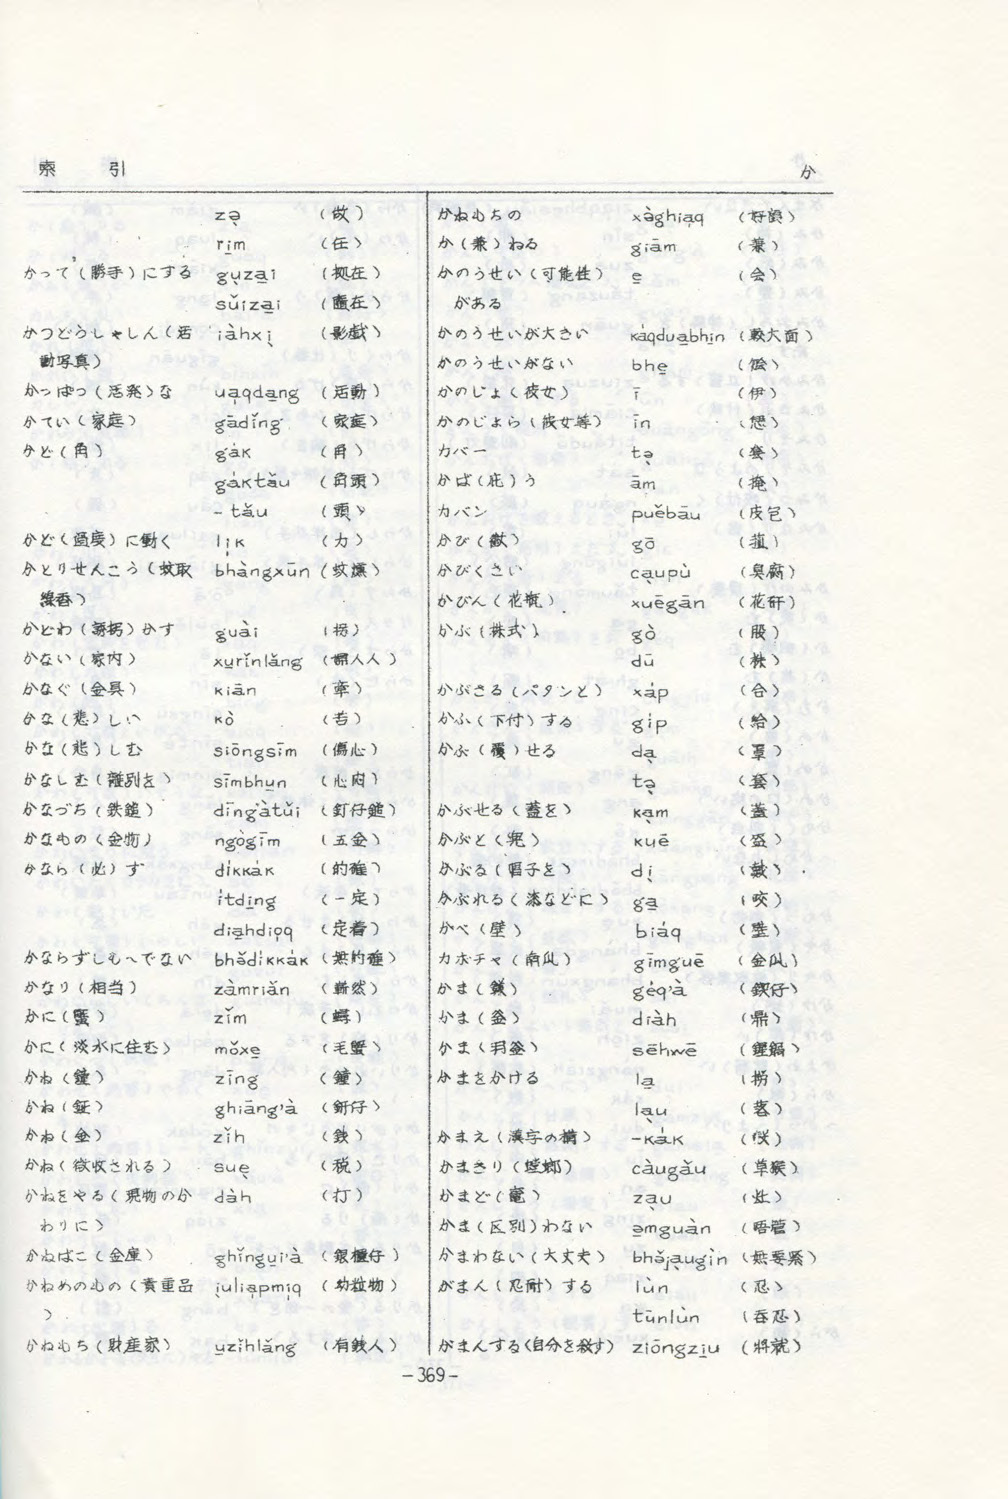 索 引
か
zə̣ (做)
rịm (任)
かって(勝手)にする gụzại (拠在)
sŭizại (随在)
かつどうしゃしん(活 iàhxị (影戯)
動写真)
かっぱつ(活発)な uạqdạng (活動)
かてい(家庭) gādǐng (家庭)
かど(角) gák (角)
gáktǎu (角頭)
-tǎu (頭)
かど(過度)に働く lịk (力)
かとりせんこう(蚊取 bhàngxūn (蚊燻)
線香)
かどわ(誘拐)かす guài (拐)
かない(家内) xụrǐnlǎng (婦人人)
かなぐ(金具) kiān (牽)
かな(悲)しい kò (苦)
かな(悲)しむ siōngsīm (傷心)
かなしむ(離別を) sīmbhụn (心悶)
かなづち(鉄鎚) dīng'àtǔi (釘仔鎚)
かなもの(金物) ngògīm (五金)
かなら(必)ず díkkák (的確)
ítdịng (一定)
diạhdiọq (定着)
かならずしも〜でない bhə̌díkkák (無的確)
かなり(相当) zàmriǎn (嶄然)
かに(蟹) zǐm (蟳)
かに(淡水に住む) mǒxẹ (毛蟹)
かね(鐘) zīng (鐘)
かね(鉦) ghiāng'à
かね(金) zǐh (銭)
かね(徴収される) suẹ (税)
かねをやる(現物のか dàh (打)
わりに)
かねばこ(金庫) ghǐngụi'à (銀櫃仔)
かねめのもの(貴重品 iụliạpmịq (幼粒物)
)
かねもち(財産家) ụzǐhlǎng (有銭人)
かねもちの xàghiạq (好額)
か(兼)ねる giām (兼)
かのうせい(可能性) ẹ (会)
がある
かのうせいが大きい káqduạbhịn (較大面)
かのうせいがない bhẹ
かのじょ(彼女) ī (伊)
かのじょら(彼女等) īn
カバー tə̣ (套)
かば(庇)う ām (掩)
カバン puěbāu (皮包)
かび(黴) gō (菰)
かびくさい cạupù (臭腐)
かびん(花瓶) xuēgān (花矸)
かぶ(株式) gò (股)
dū (株)
かぶさる(パタンと) xáp (合)
かふ(下付)する gíp (給)
かぶ(覆)せる dạ (罩)
tə̣ (套)
かぶせる(蓋を) kạm (蓋)
かぶと(兜) kuē (盔)
かぶる(帽子を) dị (戴)
かぶれる(漆などに) gạ (咬)
かべ(壁) biáq (壁)
カボチャ(南瓜) gīmguē (金瓜)
かま(鎌) géq'à (鍥仔)
かま(釜) diàh (鼎)
かま(羽釜) sēhwē (鉎鍋)
かまをかける lạ
lạu (落)
かまえ(漢字の構) -kák
かまきり(蟷螂) càugǎu (草猴)
かまど(竈) zạu (灶)
かま(区別)わない ə̣mguàn (唔管)
かまわない(大丈夫) bhə̌jạugìn (無要緊)
がまん(忍耐)する lùn (忍)
tūnlùn (呑忍)
がまんする(自分を殺す) ziōngzịu (将就)
-369-